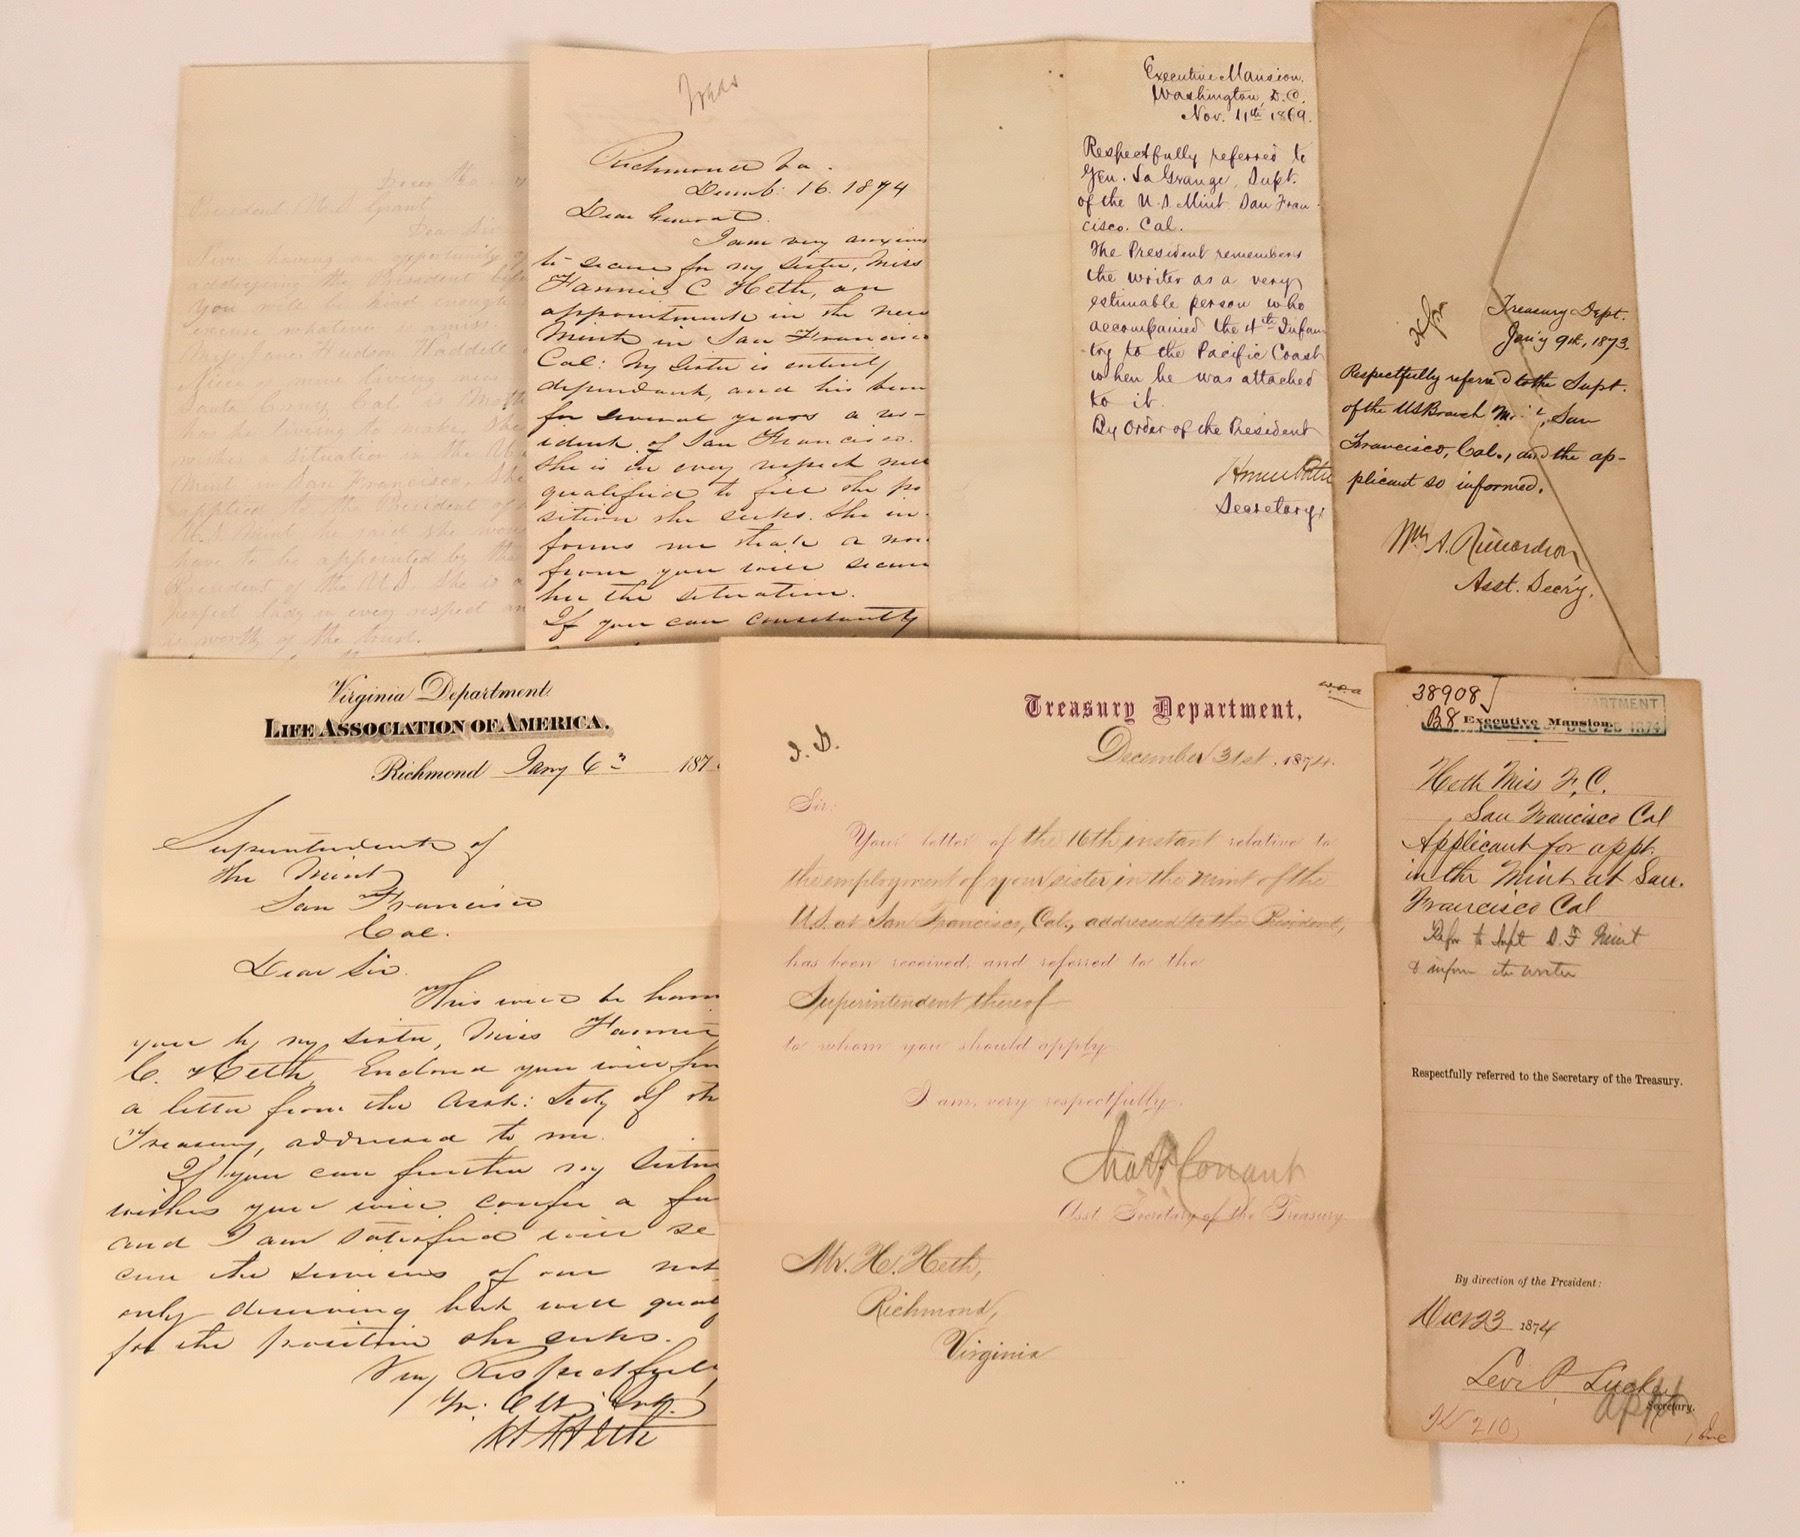 President U.S. Grant
Dear Sir
Never having an opportunity of
addressing the President before
you will be kind enough
excuse whatever is amiss
Mrs Jane Hudson Waddell
Niece of mine living near
Santa Cruz, Cal. is
has her living to make. She
wishes a situation in the U.S
Mint in San Francisco. She
applied to the President of
U.S. Mint he said she would
have to be appointed by the
President of the U.S. She is a
perfect lady in every respect an
is worthy of the trust.
Richmond Va.
Decemb: 16. 1874
Dear General.
I am very anxious
to secure for my sister, Miss
Fannie C Heth, an
appointment in the new
Mint in San Francisco
Cal: My sister is entirely
dependent, and has been
for several years a re-
sident of San Francisco.
She is in every respect well
qualified to fill the po
sition she seeks. She in-
forms me that a word
from you will secure
her the situation.
If you can consistently
Executive Mansion.
Washington, D.C.
Nov. 11th 1869.
Respectfully referred to
Gen. La Grange, Supt.
of the U.S. Mint. San Fran-
cisco. Cal.
The President remembers
the writer as a very
estimable person who
accompanied the 4th Infan
-try to the Pacific Coast
when he was attached
to it.
By Order of the President
Secretary.
Treasury Dept.
Jan'y 9th, 1873.
Respectfully referred to the Supt.
of the US Branch Mint, San
Francisco, Cal., and the ap-
plicant so informed.
Wm A. Richardson
Asst. Secr'y.
Virginia Department
LIFE ASSOCIATION OF AMERICA.
Richmond Jany 6 187
Superintendent of
the Mint
San Francisco
Cal.
Dear Sir.
This will be han
you by my sister, Miss Fannie
C. Heth. Enclosed you will fin
a letter from the Asst: Secty of th
Treasury, addressed to me.
If you can further my sisters
wishes you will confer a fa
and I am satisfied will se
cure the services of one not
only deserving but well qual
for the position she seeks.
Very Respectfully
H Heth
Treasury Department,
December 31st, 1874.
Sir:
Your letter of the 16th instant relative to
the employment of your sister in the Mint of the
U.S. at San Francisco, Cal., addressed to the President,
has been received, and referred to the
Superintendent thereof
to whom you should apply.
I am, very respectfully,
Chas F Conant
Asst. Secretary of the Treasury
Mr. H. Heth,
Richmond,
Virginia
38908
B8 Executive Mansion.
DEPARTMENT
RECEIVED DEC 26 1874
Heth Miss F. C.
San Francisco Cal
Applicant for appt.
in the Mint at San.
Francisco Cal
Refer to Supt S. F Mint
& inform the writer
Respectfully referred to the Secretary of the Treasury.
By direction of the President:
Dec 23 1874
Levi P. Luckey
Secretary.
appt
210